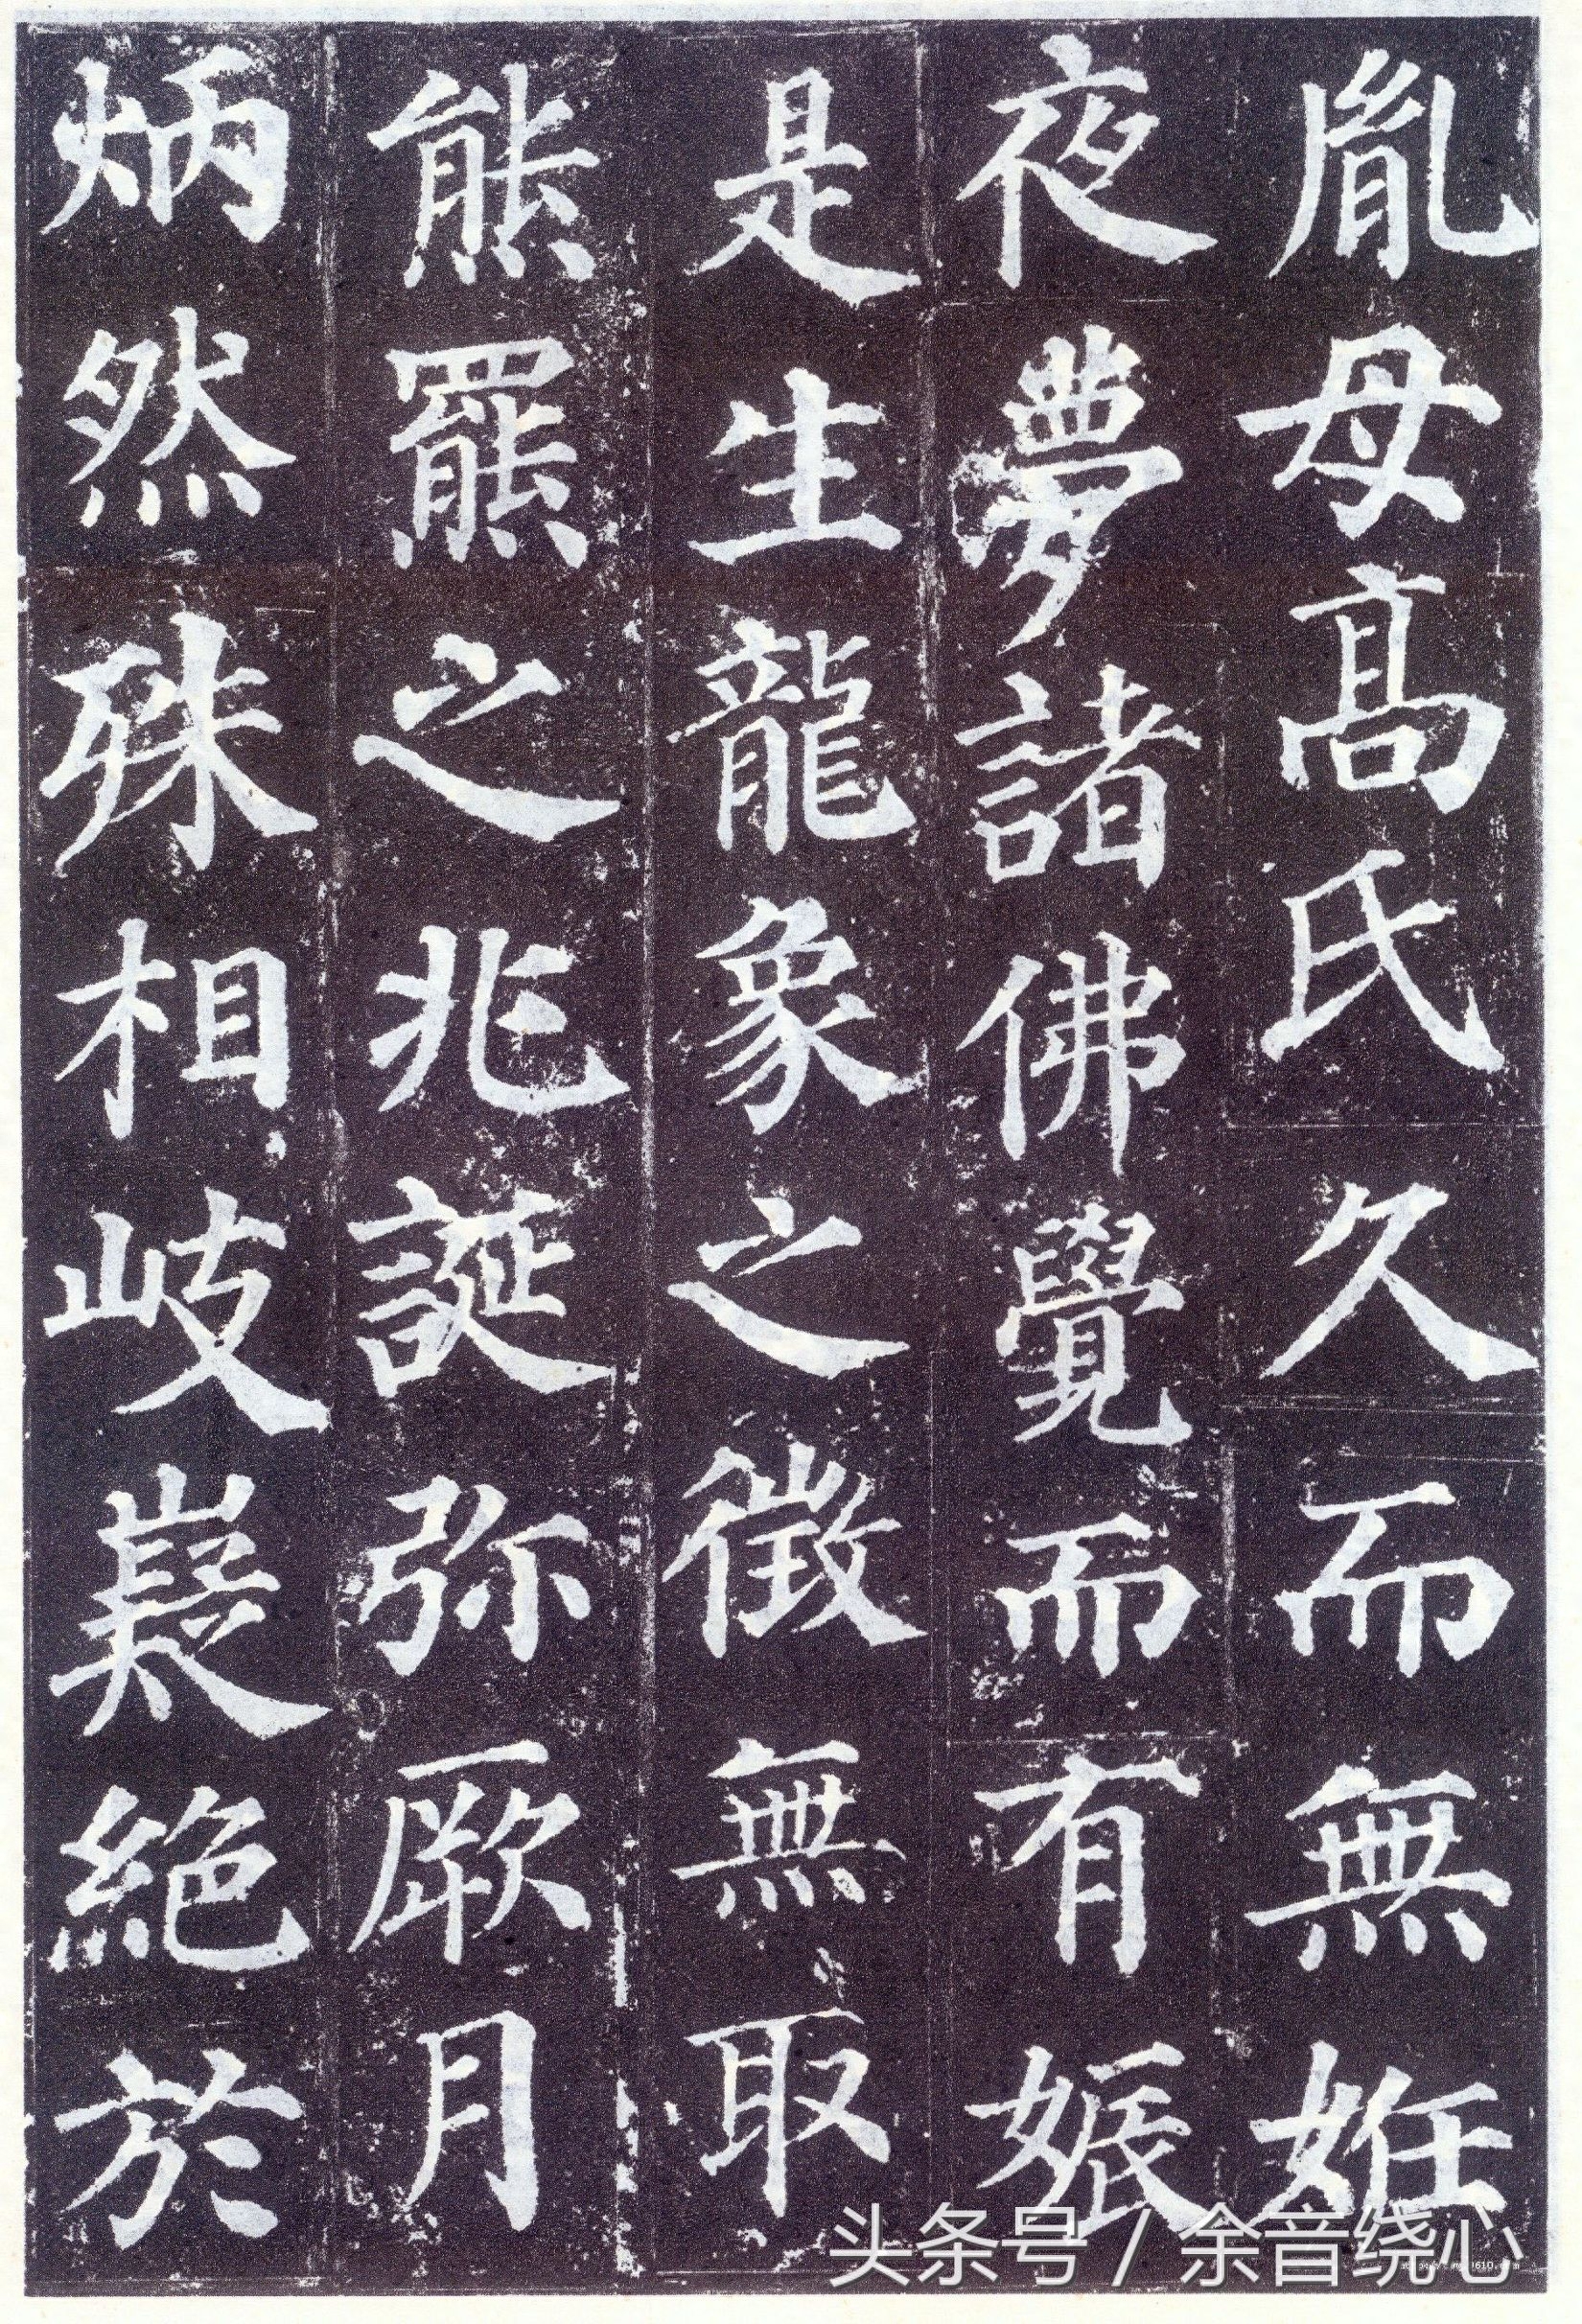 胤母高氏久而無姙
夜夢諸佛覺而有娠
是生龍象之徵無取
熊羆之兆誕弥厥月
炳然殊相岐嶷絕於
头条号 / 余音绕心